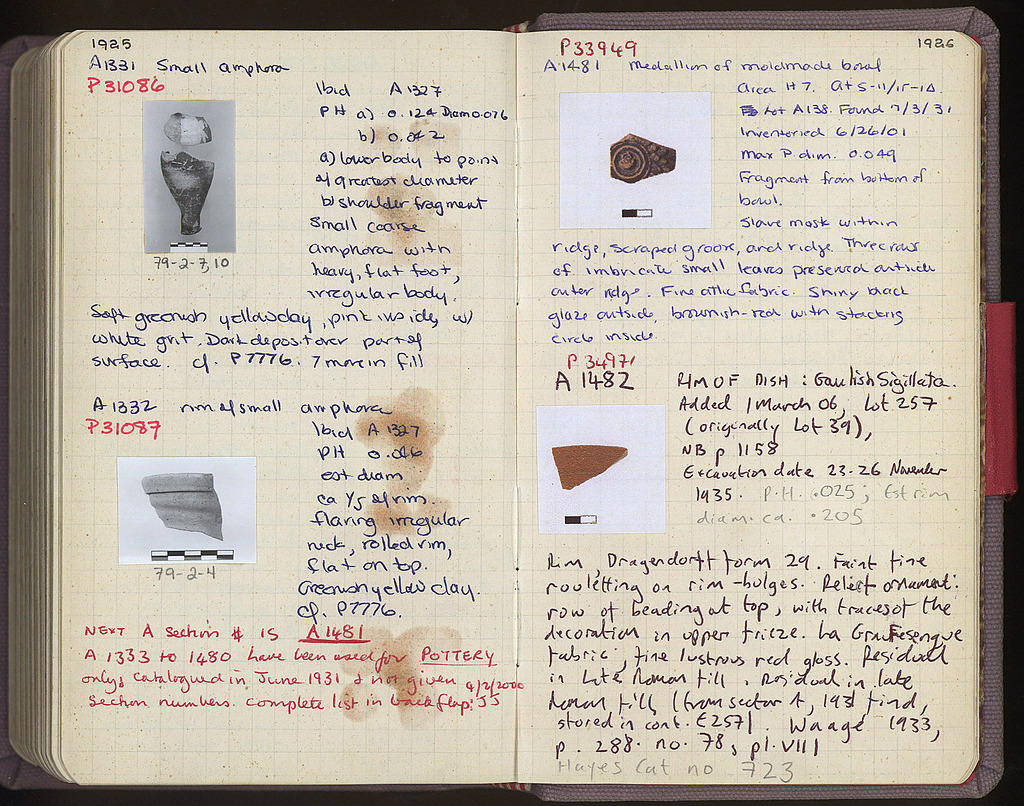 1925
A1331 Small amphora
P31086
Ibid A 1327
PH a) 0.124 Diam 0.076
b) 0.042
a) lower body to point
of greatest diameter
b) shoulder fragment
Small coarse
amphora with
heavy, flat foot,
irregular body.
79-2-7,10
Soft greenish yellow clay, pink inside, w/
white grit. Dark deposit over part of
surface. cf. P7776. 7 more in fill
A 1332 rim of small amphora
P31087
Ibid A 1327
PH 0.046
est diam
ca 1/5 of rim.
flaring irregular
neck, rolled rim,
flat on top.
Greenish yellow clay.
cf. P7776.
79-2-4
NEXT A Section # IS A1481
A 1333 to 1480 have been used for POTTERY
only, catalogued in June 1931 & not given 9/2/2000
Section numbers. Complete list in back flap. JJ
1926
P33949
A1481 Medallion of moldmade bowl
Area H 7.
Lot A138. Found 7/3/31
Inventoried 6/26/01
Max P. dim. 0.049
Fragment from bottom of
bowl.
Slave mask within
ridge, scraped groove, and ridge. Three rows
of imbricate small leaves preserved outside
outer ridge. Fine attic fabric. Shiny black
glaze outside, brownish-red with stacking
circle inside.
P 34971
A 1482 RIM OF DISH : Gaulish Sigillata.
Added 1 March 06, Lot 257
(originally Lot 39),
NB p 1158
Excavation date 23-26 November
1935. P.H. .025; Est rim
diam. ca. .205
Rim, Dragendorff form 29. Faint fine
rouletting on rim-bulges. Relief ornament:
row of beading at top, with traces of the
decoration in upper frieze. La Graufesenque
fabric, fine lustrous red gloss. Residual
in Late Roman fill. Residual in late
Roman fill, (from sector A, 1931 find,
stored in cont. E257). Waage 1933,
p. 288. no. 78, pl. VIII
Hayes Cat no 723